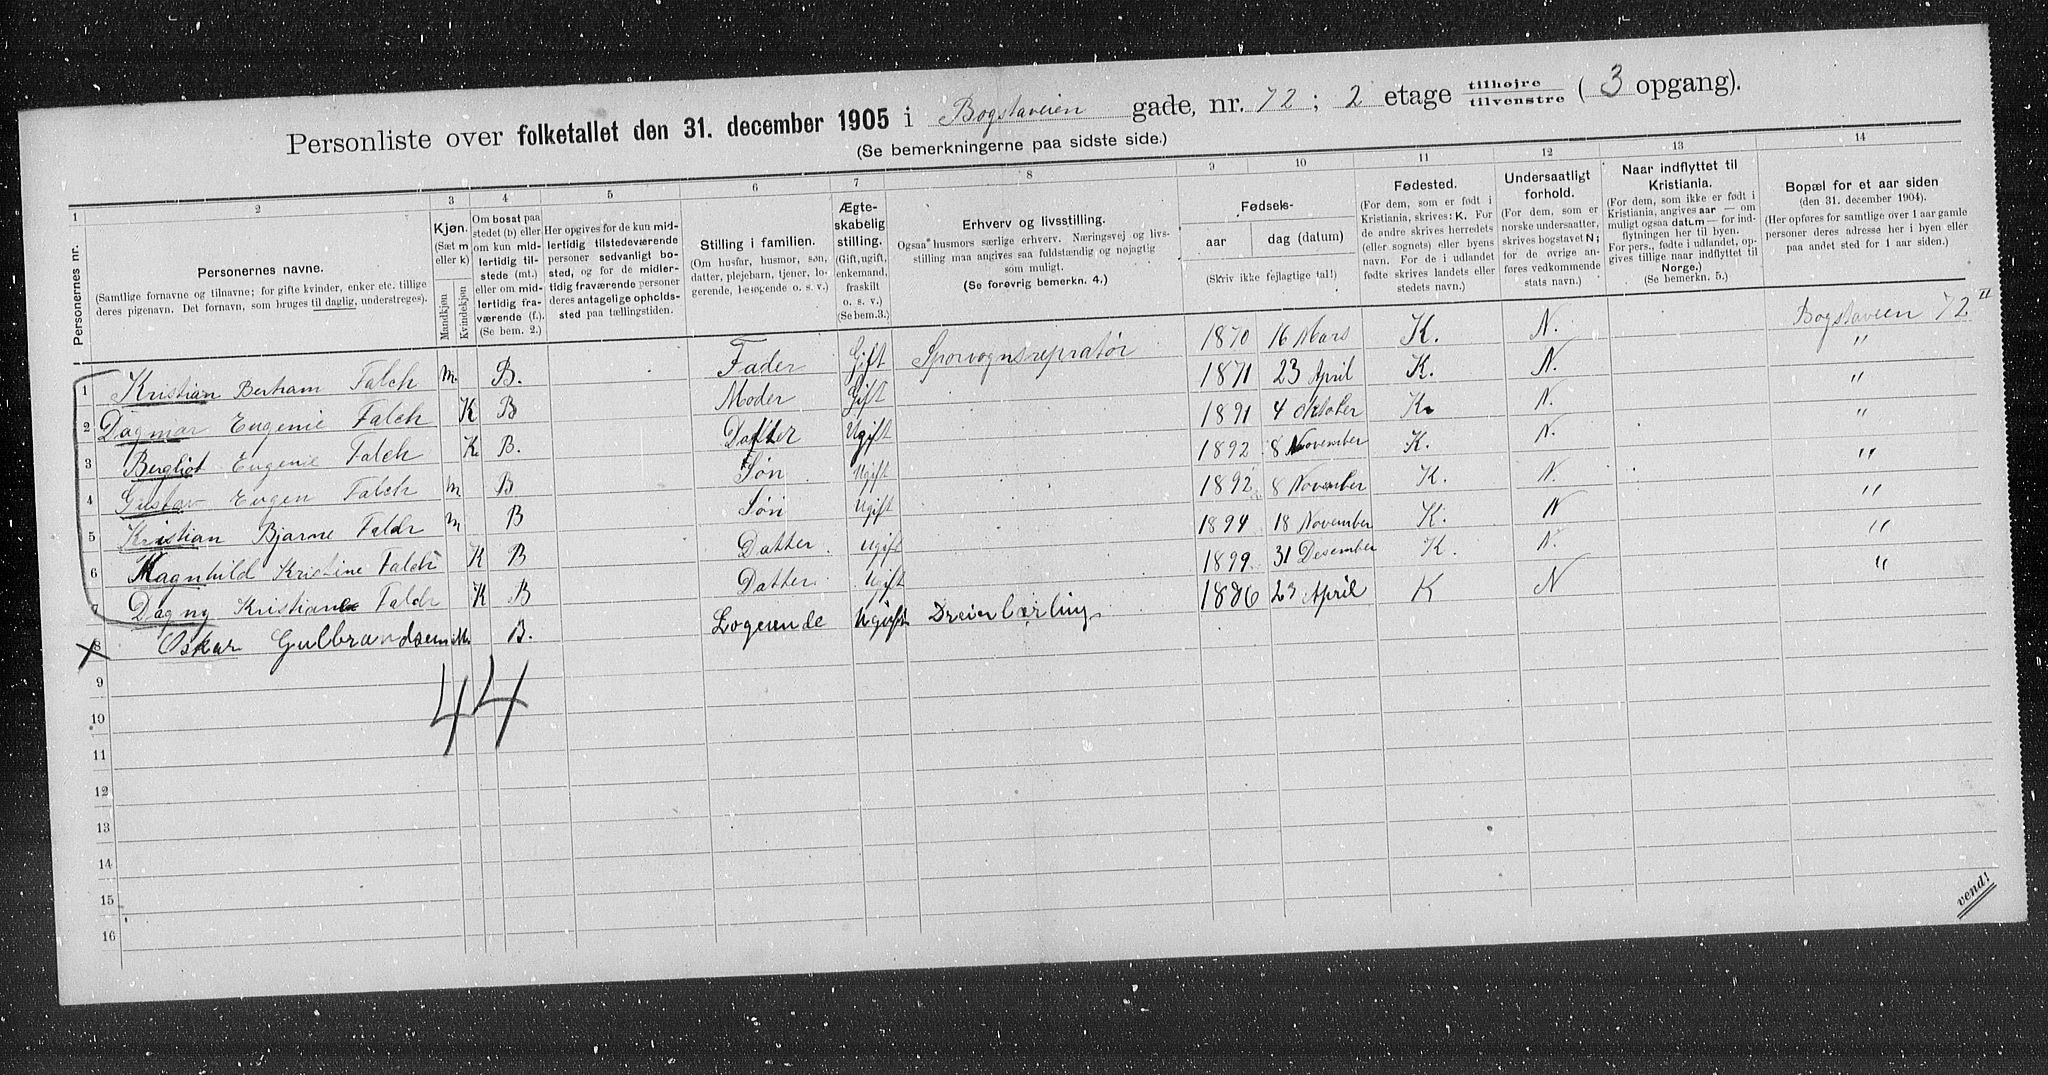 Personliste over folketallet den 31. december 1905 i Bogstaveien gade, nr. 72 ; 2 etage tilhøjre tilvenstre ( 3 opgang).
(Se bemerkningerne paa sidste side.)
1 2 3 4 5 6 7 8 9 10 11 12 13 14
Personernes nr.
Personernes navne.
(Samtlige fornavne og tilnavne; for gifte kvinder, enker etc. tillige
deres pigenavn. Det fornavn, som bruges til daglig, understreges).
Kjøn.
(Sæt m
eller k)
Mandkjøn
Kvindekjøn
Om bosat paa
stedet (b) eller
om kun mid-
lertidig tilstede (mt.)
eller om mid-
lertidig fra-
værende (f.).
(Se bem. 2.)
Her opgives for de kun mid-
lertidig tilstedeværende
personer sedvanligt bo-
sted, og for de midler-
tidig fraværende personer
deres antagelige opholds-
sted paa tællingstiden.
Stilling i familien.
(Om husfar, husmor, søn,
datter, plejebarn, tjener, lo-
gerende, besøgende o. s. v.)
Ægte-
skabelig
stilling.
(Gift, ugift,
enkemand,
fraskilt
o. s. v.)
(Se bem.3.)
Erhverv og livsstilling.
Ogsaa husmors særlige erhverv. Næringsvej og livs-
stilling maa angives saa fuldstændig og nøjagtig
som muligt.
(Se forøvrig bemerkn. 4.)
Fødsels-
aar
dag (datum)
(Skriv ikke fejlagtige tal!)
Fødested.
(For dem, som er født i
Kristiania, skrives: K. For
de andre skrives herredets
(eller sognets) eller byens
navn. For de i udlandet
fødte skrives landets eller
stedets navn.)
Undersaatligt
forhold.
(For dem, som er
norske undersaatter,
skrives bogstavet N;
for de øvrige an-
føres vedkommende
stats navn.)
Naar indflyttet til
Kristiania.
(For dem, som ikke er født i
Kristiania, angives aar — om
muligt ogsaa datum — for ind-
flytningen her til byen.
For pers., fødte i udlandet, op-
gives tillige naar indflyttet til
Norge.)
(Se bemerkn. 5.)
Bopæl for et aar siden
(den 31. december 1904).
(Her opføres for samtlige over 1 aar gamle
personer deres adresse her i byen eller
paa andet sted for 1 aar siden.)
1 Kristian Berham Falch m. B. Fader Gift Sporvognsrepratør 1870 16 Mars K. N. Bogstaveien 72 II
2 Dagmar Eugenie Falch K B Moder Gift 1871 23 April K. N. "
3 Bergliot Eugenie Falch K. B. Datter Ugift 1891 4 Oktober K. N. "
4 Gustav Eugen Falch m B Søn Ugift 1892 8 November K. N. "
5 Kristian Bjarne Falch m B Søn Ugift 1892 8 November K. N. "
6 Magnhild Kristine Falch K B Datter. Ugift 1894 18 November K. N "
7 Dagny Kristiane Falch K B Datter. Ugift 1899 31 Desember K. N. "
x 8 Oskar Gulbrandsen M. B. Logerende Ugift Dreierlærling 1886 23 April K N "
44
9
10
11
12
13
14
15
16
vend!